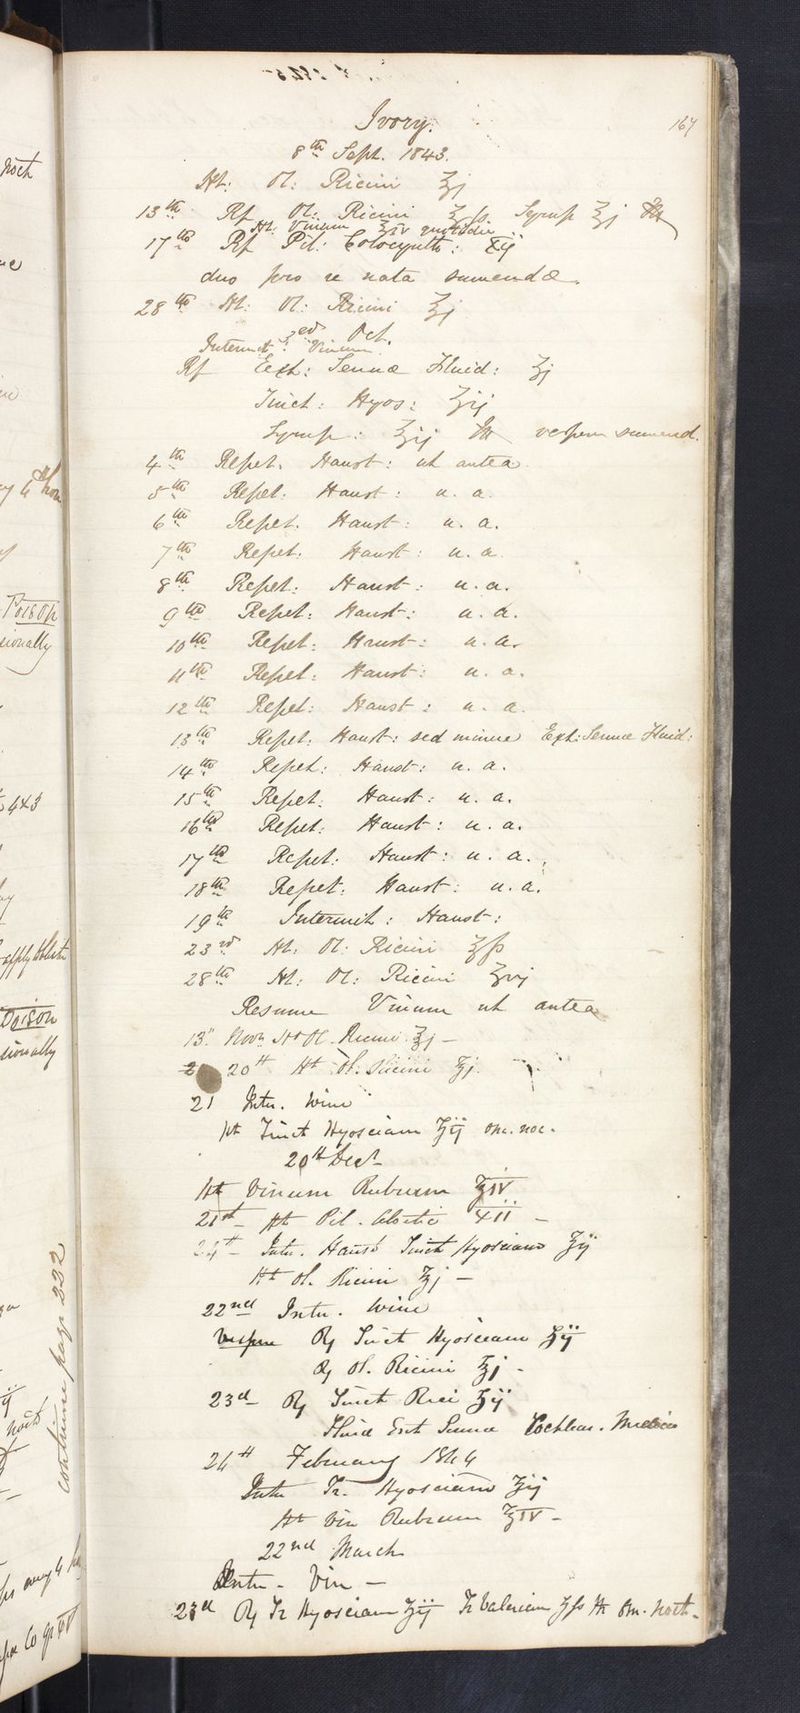 167
Ivory.
8th Sept. 1843.
Ht: Ol: Ricini ℥j
13th Rx Ol: Ricini ℥fs Syrup ℥j Ht
Ht: Vinum ℥iv quotidie
17th Rx Pil: Colocynth: xij
duo pro re nata sumendæ.
28th Ht: Ol: Ricini ℥j
3rd Oct.
Intermit: Vinum
Rx Ext: Sennæ Fluid: ʒj
Tinct: Hyos: ʒij
Syrup: ʒij Ht vespere sumend.
4th Repet. Haust: ut antea
5th Repet: Haust: u. a.
6th Repet. Haust: u. a.
7th Repet: Haust: u. a.
8th Repet: Haust: u. a.
9th Repet: Haust: u. a.
10th Repet: Haust: u. a.
11th Repet: Haust: u. a.
12th Repet: Haust: u. a.
13th Repet: Haust: sed minue Ext: Sennæ Fluid:
14th Repet: Haust: u. a.
15th Repet: Haust: u. a.
16th Repet: Haust: u. a.
17th Repet: Haust: u. a.
18th Repet: Haust: u. a.
19th Intermit: Haust:
23rd Ht: Ol: Ricini ℥fs
28th Ht: Ol: Ricini ʒvj
Resume Vinum ut antea
13" Novr Ht Ol. Ricini ℥j —
20th Ht Ol. Ricini ℥j
21 Intr. Wine
Ht Tinct Hyosciam ʒij om. noc.
20th Decr
Ht Vinum Rubrum ℥IV
21st Ht Pil. xii —
24th Intr. Haust Tinct Hyosciam ʒij
Ht Ol. Ricini ℥j —
22nd Intr. Wine
Vespere Rx Tinct Hyosciam ʒij
Rx Ol. Ricini ℥j -
23d Rx Tinct Rhei ʒij
Fluid Ext Sennæ Cochlear.
24th February 1844
Intr Tr. Hyosciam ʒij
Ht Vin Rubrum ℥IV —
22nd March
Intr - Vin —
23d Rx Tr Hyosciam ʒij Tr Valerian ʒfs Ht om. noct.
continue page 222